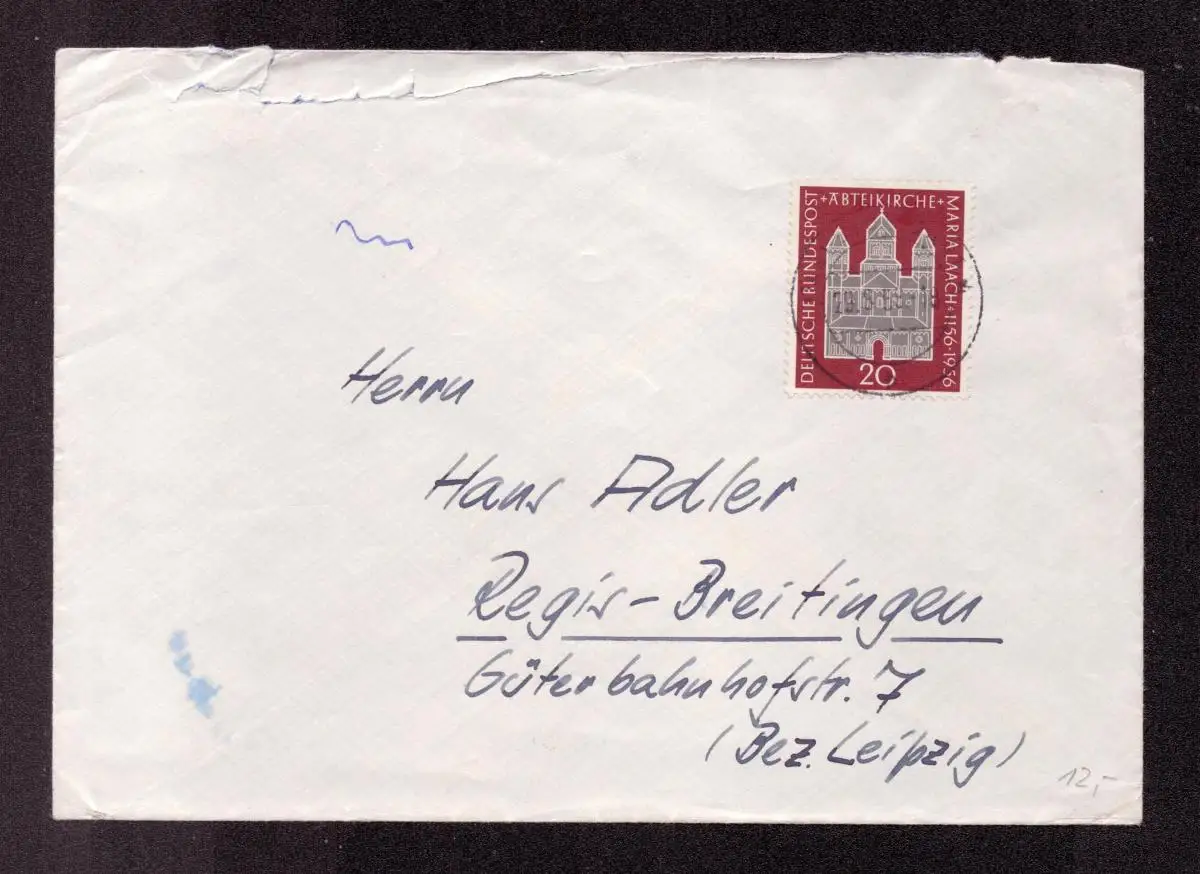 +ABTEIKIRCHE+
DEUTSCHE BUNDESPOST
MARIA LAACH · 1156 · 1956
20
Herrn
Hans Adler
Regis-Breitingen
Güterbahnhofstr. 7
(Bez. Leipzig)
12,-